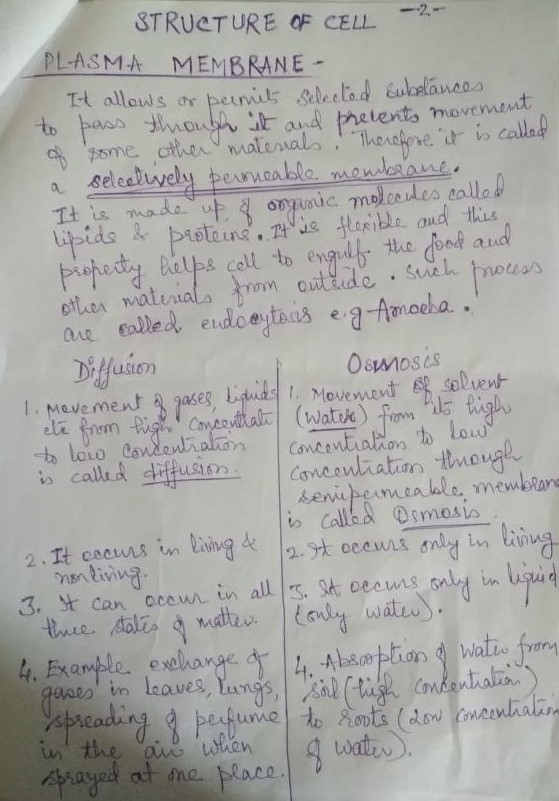 STRUCTURE OF CELL -2-
PLASMA MEMBRANE -
It allows or permits selected substances
to pass through it and prevents movement
of some other materials. Therefore it is called
a selectively permeable membrane.
It is made up of organic molecules called
lipids & proteins. It is flexible and this
property helps cell to engulf the food and
other materials from outside. such process
are called endocytosis e.g Amoeba.
Diffusion
1. Movement of gases, liquids
etc from high concentrati
to low concentration
is called diffusion.
2. It occurs in living &
nonliving.
3. It can occur in all
three states of matter.
4. Example exchange of
gases in leaves, lungs,
spreading of perfume
in the air when
sprayed at one place.
Osmosis
1. Movement of solvent
(water) from its high
concentration to low
concentration through
semipermeable membrane
is called Osmosis.
2. It occurs only in living
3. It occurs only in liquid
(only water).
4. Absorption of water from
soil (high concentration)
to roots (low concentration
of water).